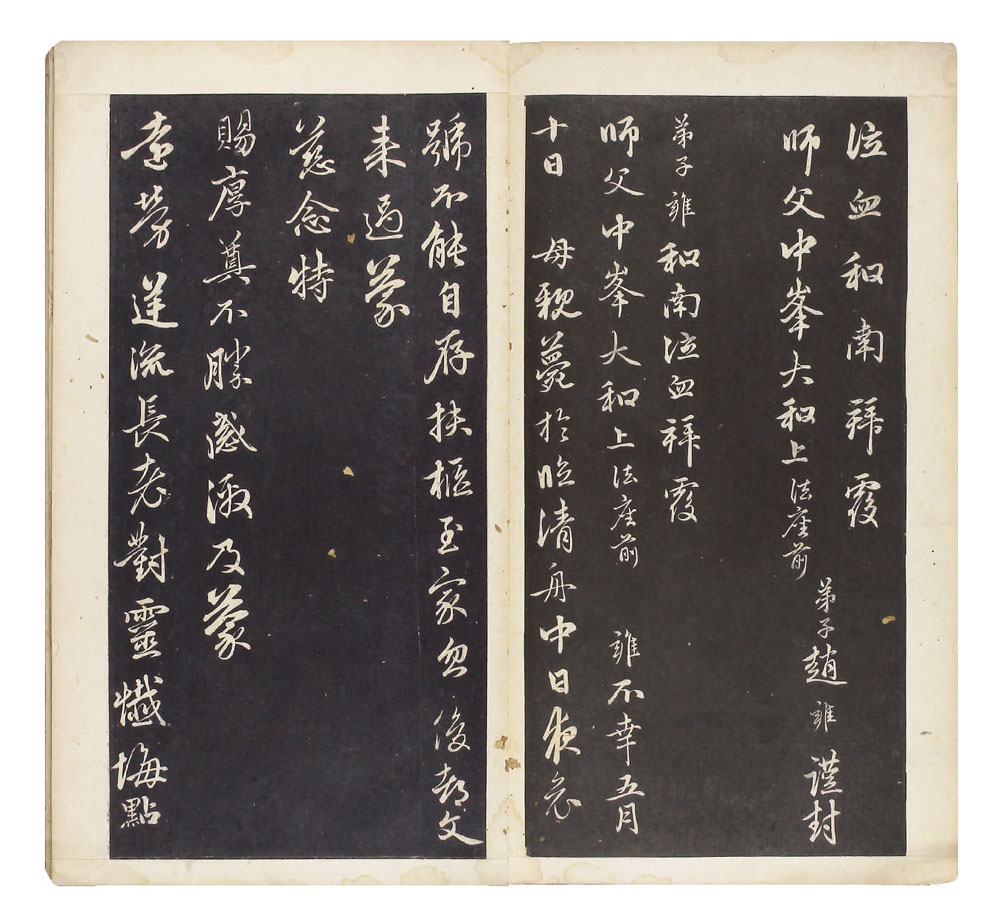 泣血和南拜覆
師父中峯大和上法座前
弟子趙雍謹封
弟子雍和南泣血拜覆
師父中峯大和上法座前 雍不幸五月
十日 母親薨於臨清舟中日夜哀
號不能自存扶柩至家忽後都文
来過蒙
慈念特
賜厚奠不勝感激及蒙
遠勞逆流長老對靈懺悔點